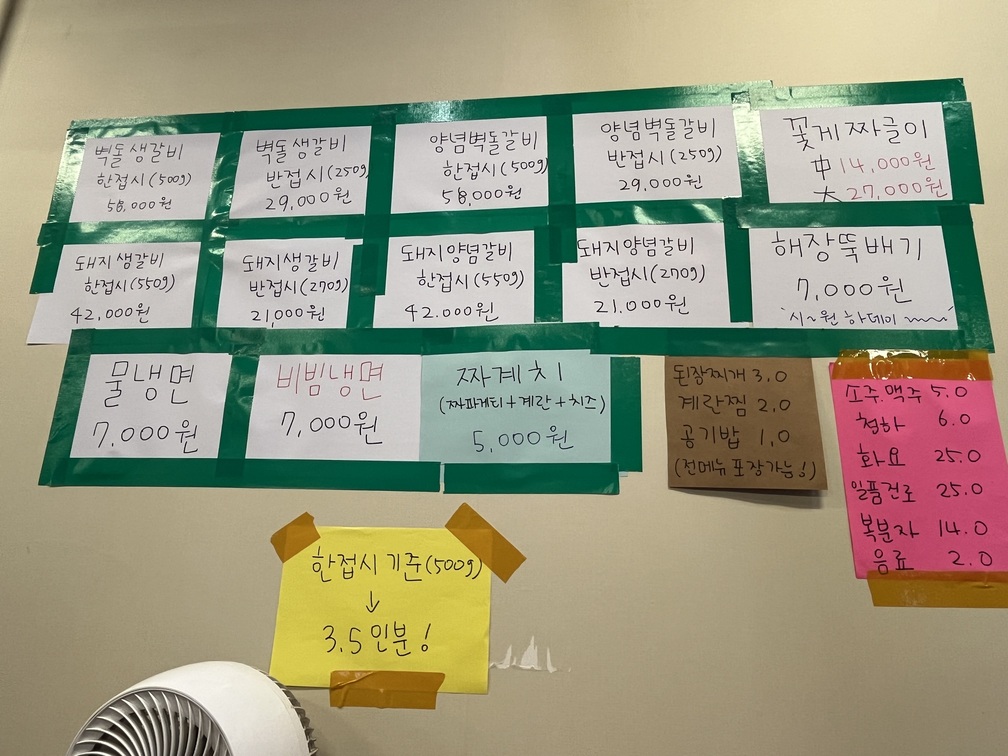 벽돌생갈비
한접시(500g)
58,000원
벽돌생갈비
반접시(250g)
29,000원
양념벽돌갈비
한접시(500g)
58,000원
양념벽돌갈비
반접시(250g)
29,000원
꽃게짜글이
中 14,000원
大 27,000원
돼지생갈비
한접시(550g)
42,000원
돼지생갈비
반접시(270g)
21,000원
돼지양념갈비
한접시(550g)
42.000원
돼지양념갈비
반접시(270g)
21.000원
해장뚝배기
7,000원
시~원 하데이~~~
물냉면
7.000원
비빔냉면
7,000원
짜계치
(짜파게티+계란+치즈)
5,000원
된장찌개 3.0
계란찜 2.0
공기밥 1.0
(전메뉴 포장가능!)
소주.맥주 5.0
청하 6.0
화요 25.0
일품진로 25.0
복분자 14.0
음료 2.0
한접시 기준(500g)
↓
3.5인분!